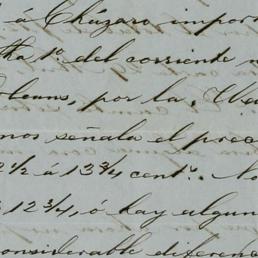 á Cházaro impor
ha 1º. del corriente
rleans, por la
nos señala el prec
2 1/2 á 13 3/4 cents. No
12 3/4, ó hay algun
considerable diferen